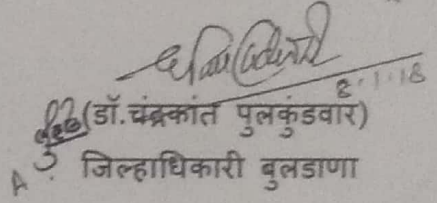 8.1.18
(डॉ.चंद्रकांत पुलकुंडवार)
जिल्हाधिकारी बुलडाणा